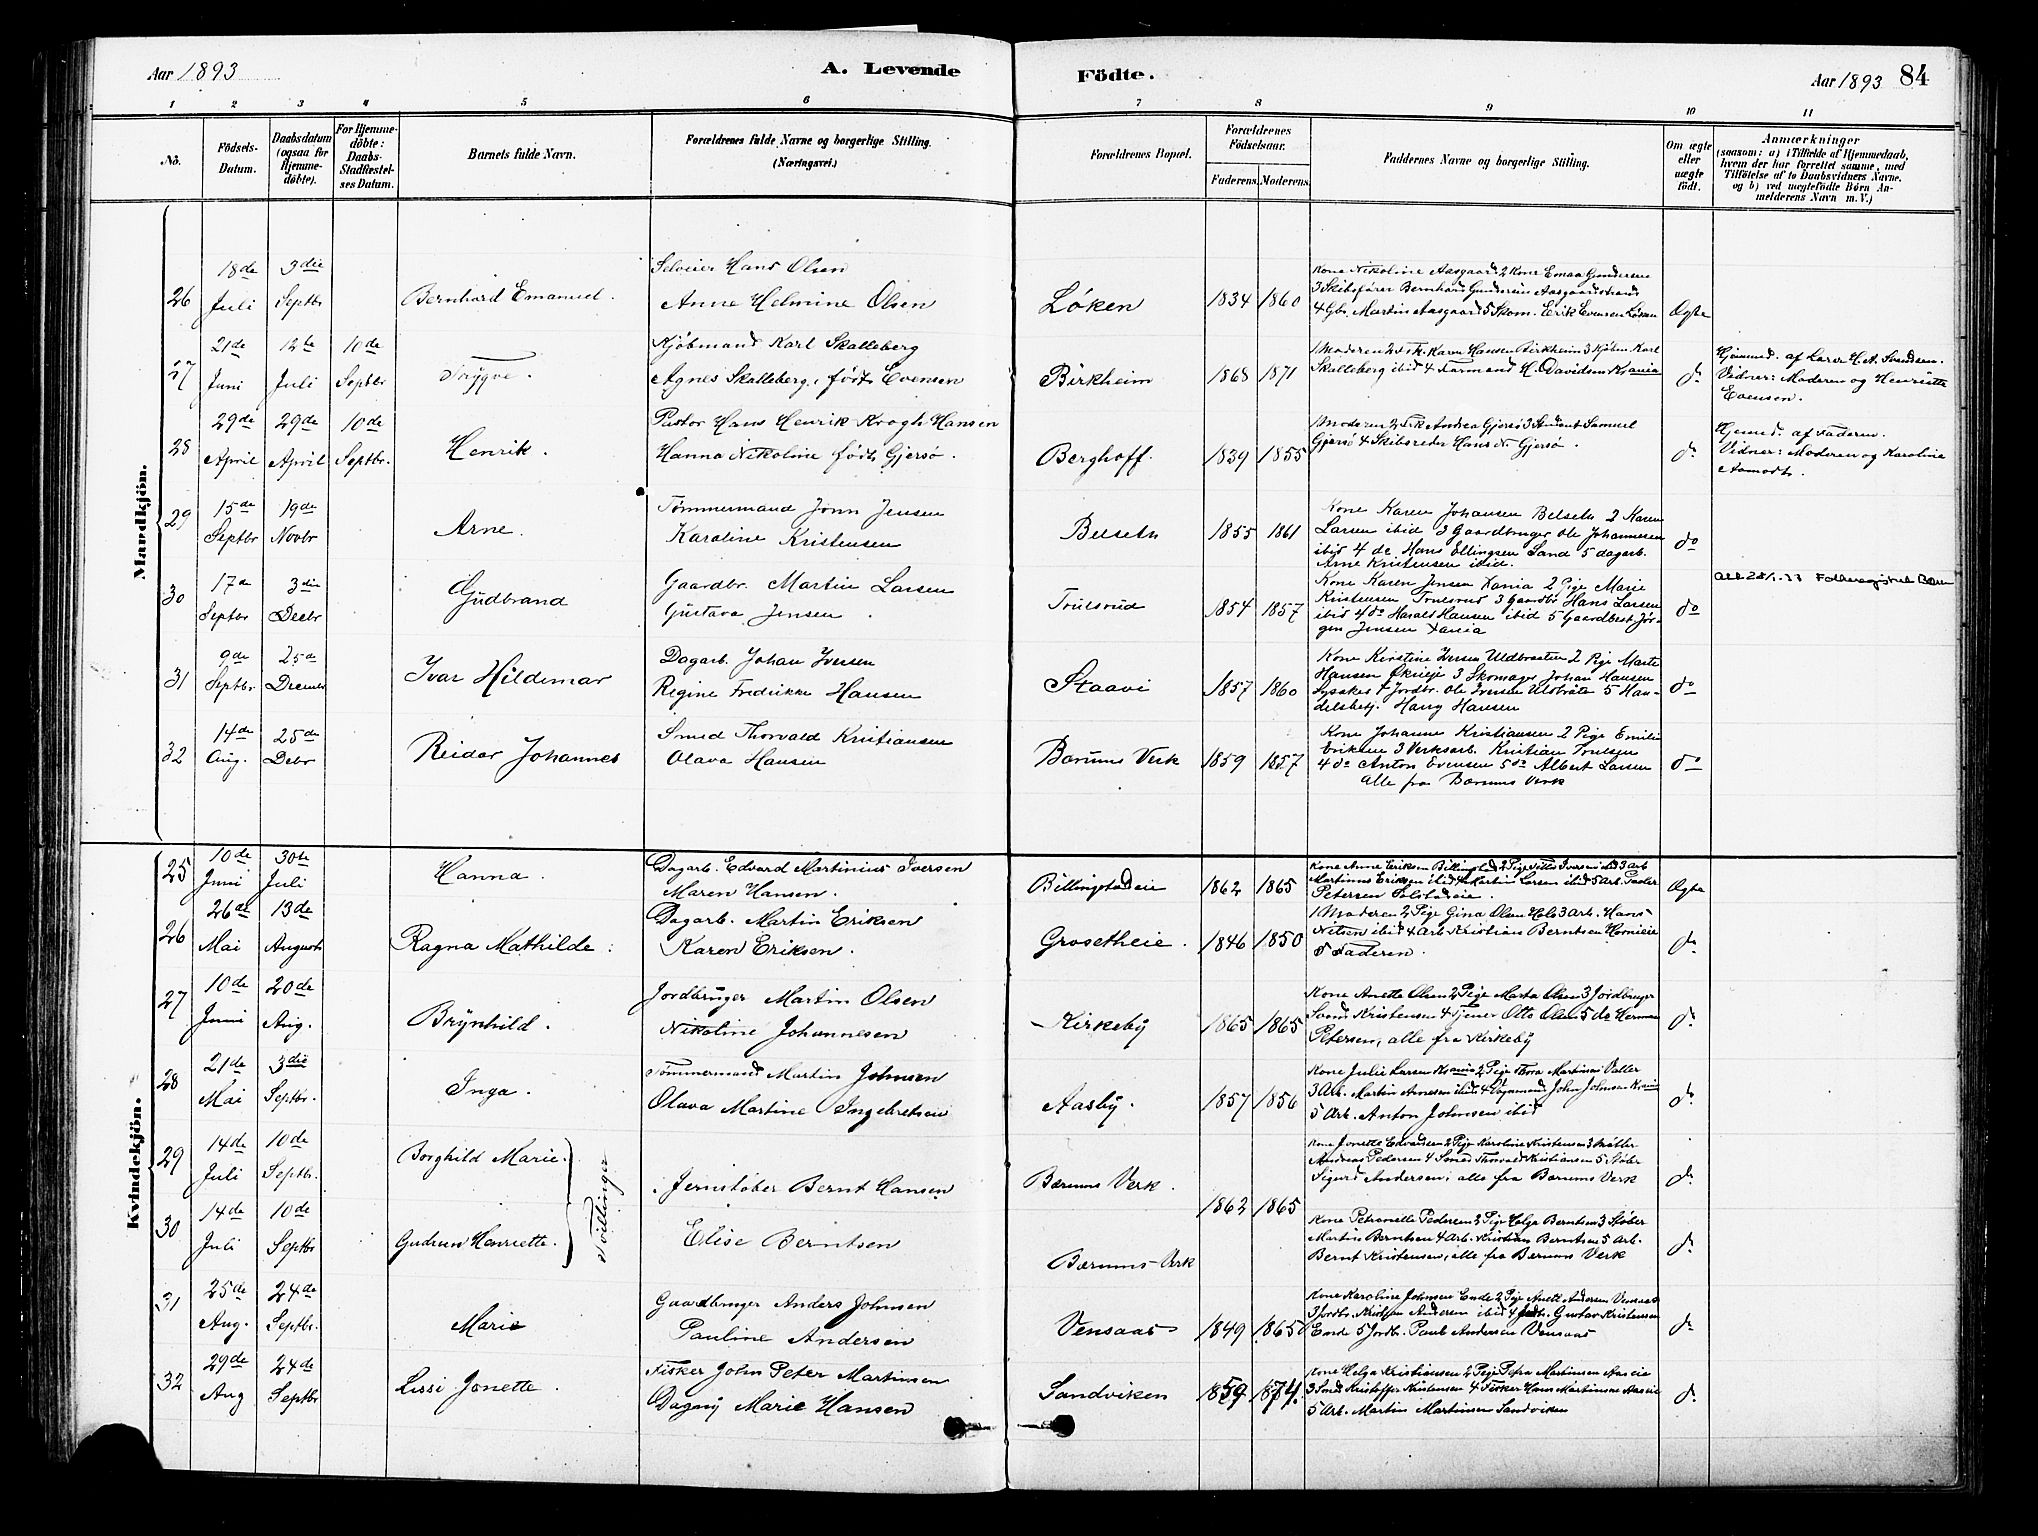 Aar 1893
A. Levende
Födte.
Aar 1893 84
1 2 3 4 5 6 7 8 9 10 11
No.
Födsels-
Datum.
Daabsdatum
(ogsaa for
Hjemme-
döbte).
For Hjemme-
döbte:
Daabs-
Stadfæstel-
ses Datum.
Barnets fulde Navn.
Forældrenes fulde Navne og borgerlige Stilling.
(Næringsvei.)
Forældrenes Bopæl.
Forældrenes
Födselsaar.
Faderens. Moderens.
Faddernes Navne og borgerlige Stilling.
Om ægte
eller
uægte
födt.
Anmærkninger
(saasom: a) i Tilfælde af Hjemmedaab,
hvem der har forrettet samme, med
Tilföielse af to Daabsvidners Navne.
og b) ved uægtefödte Börn An-
melderens Navn m.V.)
Mandkjön.
26
18de
Juli
3die
Septbr
Bernhard Emanuel.
Selveier Hans Olsen
Anne Helmine Olsen
Løken
1834 1860
Kone Nikoline Aasgaard 2 Kone Emaa Gundersen
3 Skibsfører Bernhard Gundersen Aasgaardstrand
4 Gbr. Martin Aasgaard 5 Skom. Erik Evensen Løken
Ægte
27
21de
Juni
12te
Juli
10de
Septbr
Trygve.
Kjøbmand Karl Skalleberg
Agnes Skalleberg, født Evensen
Birkheim
1868 1871
1 Moderen 2 Frk. Karen Hansen Birkheim 3 Kjøbm. Karl
Skalleberg ibid 4 Formand H. Davidsen Krania
do
Hjemmed. af Lærer H. A. Svendsen.
Vidner: Moderen og Henriette
Evensen.
28
29de
April
29de
April
10de
Septbr.
Henrik.
Pastor Hans Henrik Krogh Hansen
Hanna Nikoline født Gjersø.
Berghoff.
1839 1855
1 Moderen 2 Frk Andrea Gjersø 3 Student Samuel
Gjersø 4 Skibsreder Hans N. Gjersø.
do
Hjemmed. af Faderen.
Vidner: Moderen og Karoline
Aamodt.
29
15de
Septbr
19de
Novbr
Arne.
Tømmermand Jonn Jensen
Karoline Kristensen
Belseth
1855 1861
Kone Karen Johansen Belseth 2 Karen
Larsen ibid 3 Gaardbruger Ole Johannesen
ibid 4 do. Hans Ellingsen Sand 5 dagarb.
Arne Kristensen ibid.
do
30
17de
Septbr
3die
Decbr
Gudbrand
Gaardbr. Martin Larsen
Gustava Jensen.
Trulsrud
1854 1857
Kone Karen Jensen Xania 2 Pige Marie
Kristensen Trulsrud 3 Gaardbr. Hans Larsen
ibid 4 do Harald Hansen ibid 5 Gaardbest. Jør-
gen Jensen Xania
do
31
9de
Septbr
25de
Decmbr
Ivar Hildemar
Dagarb. Johan Iversen
Regine Fredrikke Hansen
Staavi
1857 1860
Kone Kirstine Iversen Uldbraaten 2 Pige Marte
Hansen Økneje 3 Skomager Johan Hansen
Lysaker 4 Jordbr. Ole Iversen Ulsbråte 5 Han-
delsbetj. Harry Hansen
do
32
14de
Aug.
25de
Debr
Reidar Johannes
Smed Thorvald Kristiansen
Olava Hansen
Bærums Verk
1859 1857
Kone Johanne Kristiansen 2 Pige Emilie
Eriksen 3 Verksarb. Kristian Trulsen
4 do Anton Evensen 5 do Albert Larsen
alle fra Bærums Verk
do
Kvindekjön.
25
10de
Juni
30te
Juli
Hanna.
Dagarb. Edvard Martinius Iversen
Maren Hansen.
Billingstadeie
1862 1865
Kone Anne Eriksen Billingstad 2 Pige Iversen ibid 3 arb
Martinus Eriksen ibid 4 Martin Larsen ibid 5 Arb. Peder
Petersen
Ægte
26
26de
Mai
13de
Augusti
Ragna Mathilde.
Dagarb. Martin Eriksen
Karen Eriksen.
Grosetheie.
1846 1850
1 Moderen 2 Pige Gina Olsen 3 Arb. Hans
Nilsen ibid 4 Arb Kristian Berntsen
5 Faderen.
do
27
10de
Juni
20de
Aug.
Brynhild.
Jordbruger Martin Olsen
Nikoline Johannesen
Kirkeby
1865 1865
Kone Anette Olsen 2 Pige Marta Olsen 3 Jordbruger
Svend Kristensen 4 Tjener Otto Olsen 5 do Herman
Petersen, alle fra Kirkeby
do
28
21de
Mai
3die
Septbr.
Inga.
Tømmermand Martin Johnsen
Olava Martine Ingebretsen
Aasby.
1857 1856
Kone Julie Larsen Krania 2 Pige Thora Martinsen Valler
3 Arb. Martin Arnesen ibid 4 Vognmand John Johnsen Krania
5 Arb. Anton Johnsen ibid
do
29
14de
Juli
10de
Septbr.
Borghild Marie.
Tvillinger
Jernstøber Bernt Hansen
Elise Berntsen
Bærums Verk.
1862 1865
Kone Jonette Edvardsen 2 Pige Karoline Kristensen 3 Møller
Andreas Pedersen 4 Smed Thorvald Kristiansen 5 Støber
Sigurd Andersen, alle fra Bærums Verk
do
30
14de
Juli
10de
Septbr
Gudrun Henriette.
Bærums Verk
Kone Petronille Pedersen 2 Pige Helga Berntsen 3 Støber
Martin Berntsen 4 Arb. Kristian Berntsen 5 Arb.
Bernt Kristensen, alle fra Bærums Verk
do
31
25de
Aug.
24de
Septbr.
Marie
Gaardbruger Anders Johnsen
Pauline Andersen
Vensaas
1849 1865
Kone Karoline Johnsen Ende 2 Pige Anette Andersen Vensaas
3 Jordbr. Kristian Andersen ibid 4 Jordbr. Gustav Kristensen
Ende 5 Jordbr. Paul Andersen Vensaas
do
32
29de
Aug
24de
Septbr
Lissi Jonette.
Fisker John Peter Martinsen
Dagny Marie Hansen
Sandviken
1859 1874.
Kone Helga Kristiansen 2 Pige Petra Martinsen Aaseie
3 Smed Kristoffer Kristensen 4 Fisker Hans Martinsen Aaseie
5 Arb. Martin Martinsen Sandviken
do